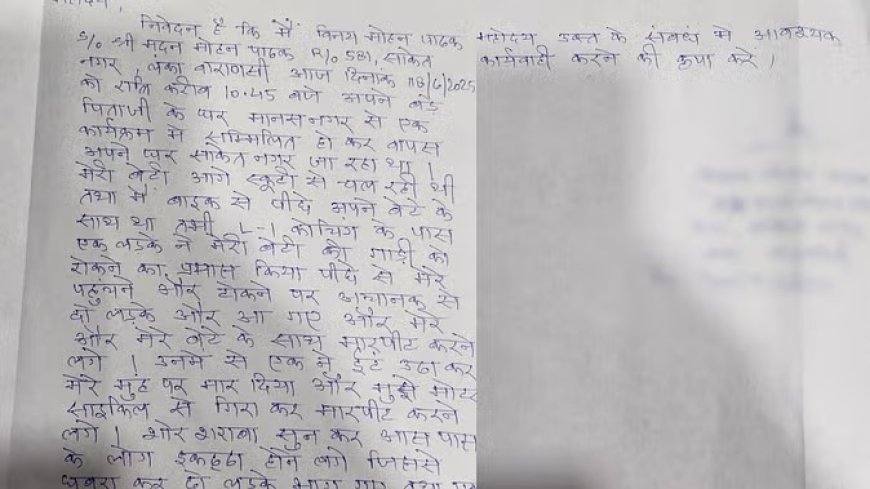 महोदय,
निवेदन है कि मैं विनय मोहन पाठक
S/o श्री मदन मोहन पाठक R/o 581, साकेत
नगर, लंका वाराणसी आज दिनांक 18/6/2025
को रात्रि करीब 10.45 बजे अपने बड़े
पिताजी के घर मानस नगर से एक
कार्यक्रम में सम्मिलित हो कर वापस
अपने घर साकेत नगर जा रहा था।
मेरी बेटी आगे स्कूटी से चल रही थी
तथा मैं बाइक से पीछे अपने बेटे के
साथ था तभी L-1 कोचिंग के पास
एक लड़के ने मेरी बेटी की गाड़ी को
रोकने का प्रयास किया पीछे से मेरे
पहुंचने और टोकने पर अचानक से
दो लड़के और आ गए और मेरे
और मेरे बेटे के साथ मारपीट करने
लगे। उनमें से एक ने ईंट उठा कर
मेरे मुह पर मार दिया और मुझे मोटर
साइकिल से गिरा कर मारपीट करने
लगे। शोर शराबा सुन कर आस पास
के लोग इकट्ठा होने लगे जिससे
घबरा कर दो लड़के भाग गए तथा एक
महोदय उक्त के संबंध में आवश्यक
कार्यवाही करने की कृपा करे।